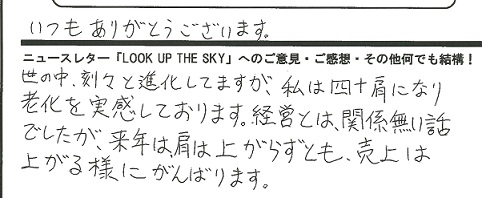 いつもありがとうございます。
ニュースレター「LOOK UP THE SKY」へのご意見・ご感想・その他何でも結構！
世の中、刻々と進化してますが、私は四十肩になり
老化を実感しております。経営とは、関係無い話
でしたが、来年は、肩は上がらずとも、売上は
上がる様にがんばります。